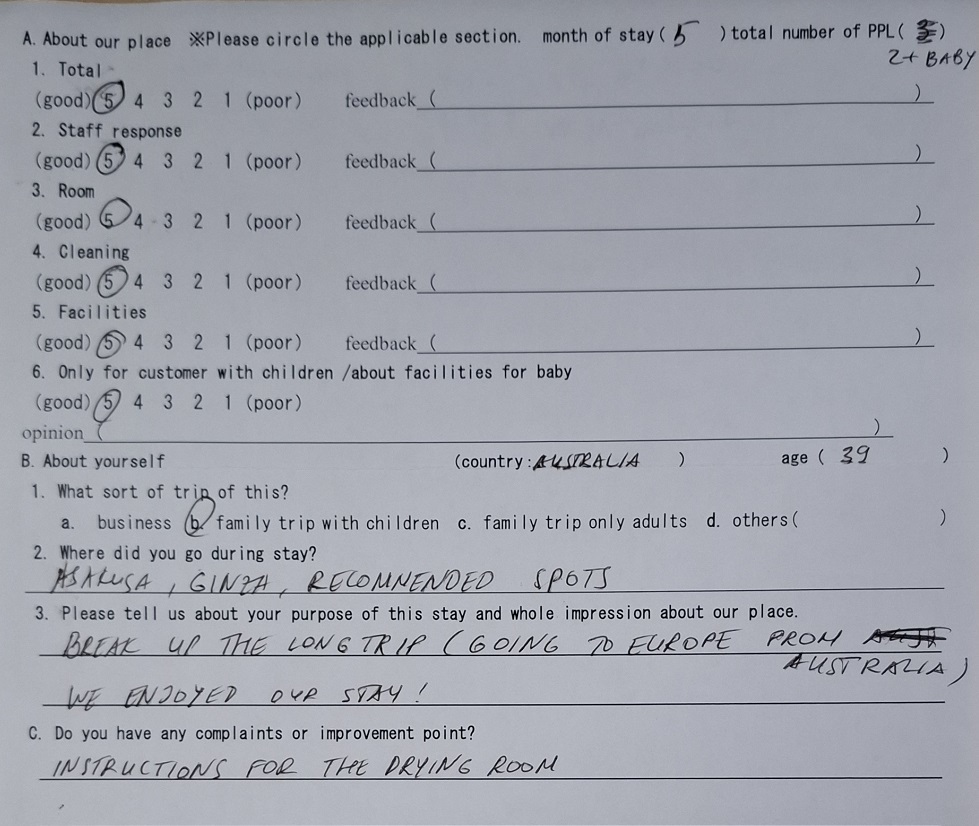 A. About our place ※Please circle the applicable section. month of stay ( 5 ) total number of PPL ( 3 )
2+ BABY
1. Total
(good) 5 4 3 2 1 (poor) feedback ( )
2. Staff response
(good) 5 4 3 2 1 (poor) feedback ( )
3. Room
(good) 5 4 3 2 1 (poor) feedback ( )
4. Cleaning
(good) 5 4 3 2 1 (poor) feedback ( )
5. Facilities
(good) 5 4 3 2 1 (poor) feedback ( )
6. Only for customer with children /about facilities for baby
(good) 5 4 3 2 1 (poor)
opinion ( )
B. About yourself (country: AUSTRALIA ) age ( 39 )
1. What sort of trip of this?
a. business b. family trip with children c. family trip only adults d. others ( )
2. Where did you go during stay?
ASAKUSA, GINZA, RECOMNENDED SPOTS
3. Please tell us about your purpose of this stay and whole impression about our place.
BREAK UP THE LONG TRIP (GOING TO EUROPE FROM
AUSTRALIA)
WE ENJOYED OUR STAY!
C. Do you have any complaints or improvement point?
INSTRUCTIONS FOR THE DRYING ROOM